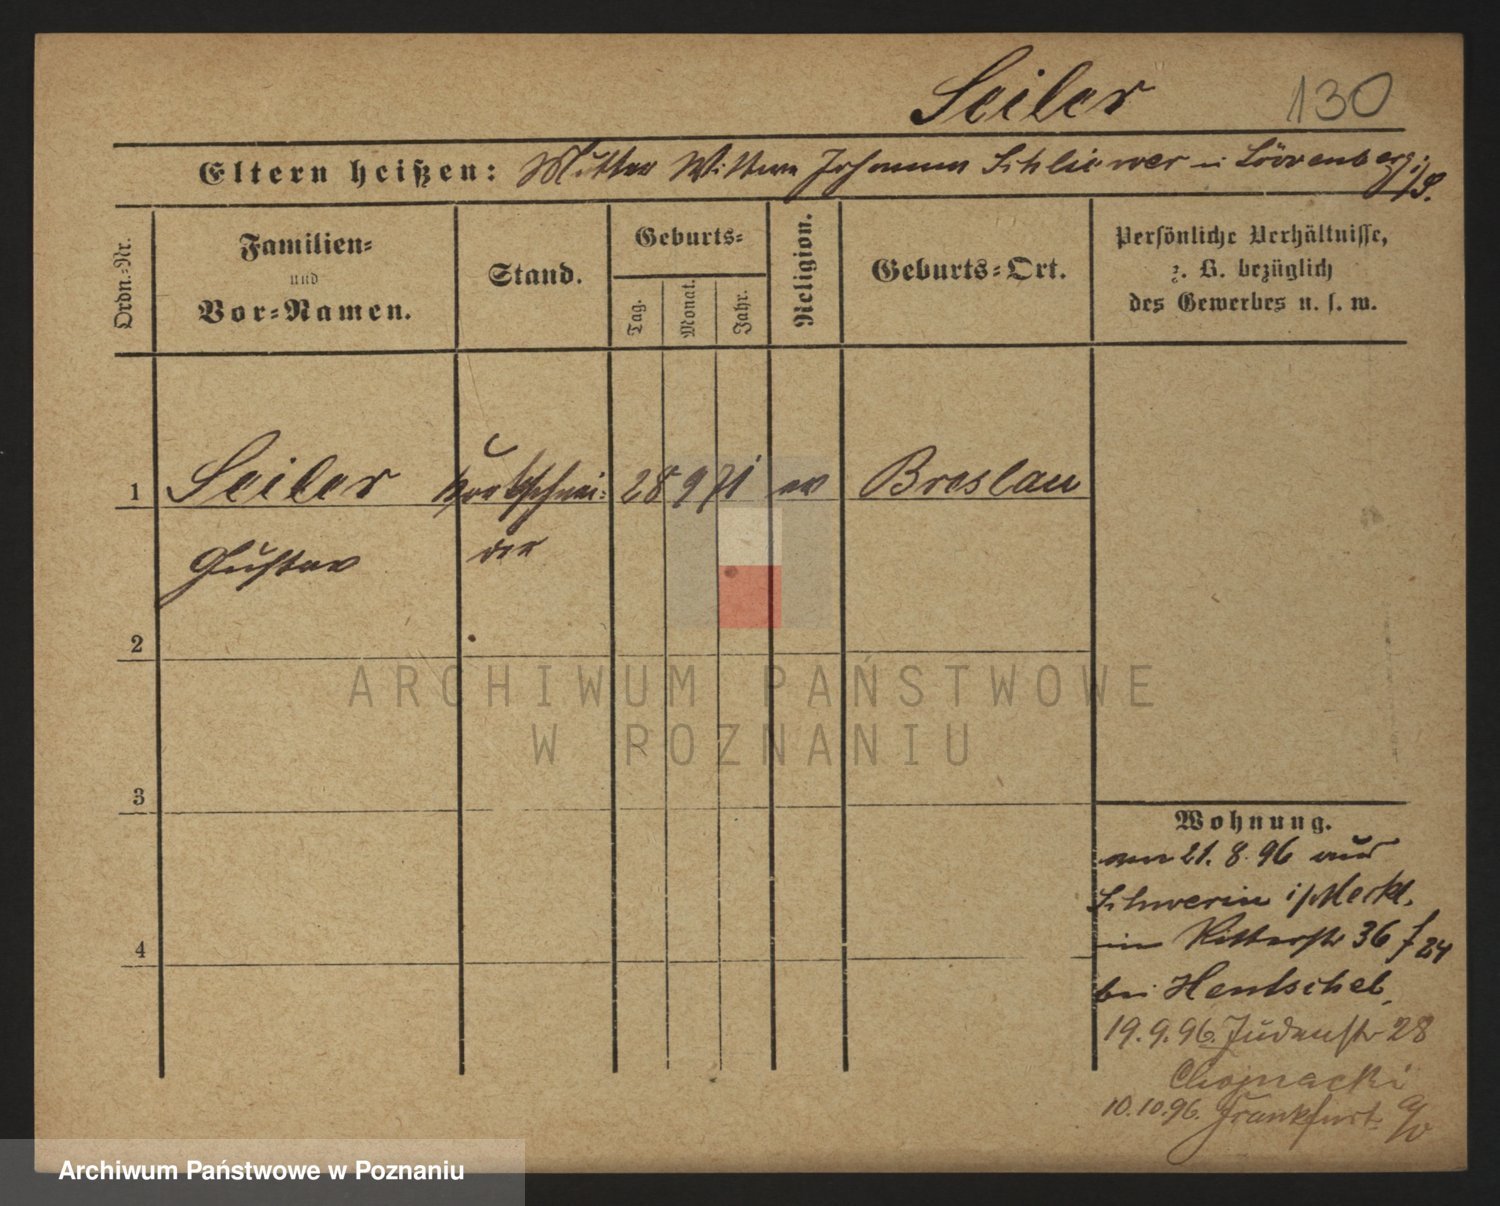 Seiler 130
Eltern heißen: Mutter Wittwe Johanna Schliewer in Löwenberg i/S.
Ordn.-Nr.
Familien-
und
Vor-Namen.
Stand.
Geburts-
Tag.
Monat.
Jahr.
Religion.
Geburts-Ort.
Persönliche Verhältnisse,
z. B. bezüglich
des Gewerbes u. s. w.
1 Seiler 28 9 71 ev Breslau
Gustav der
2
ARCHIWUM PAŃSTWOWE
W POZNANIU
3
4
Wohnung.
am 21. 8. 96 aus
Schwerin i/Meckl.
in Ritterstr 36
bei Hentschel
19. 9. 96. Judenstr 28
Chojnacki
10. 10. 96. Frankfurt a/O
Archiwum Państwowe w Poznaniu